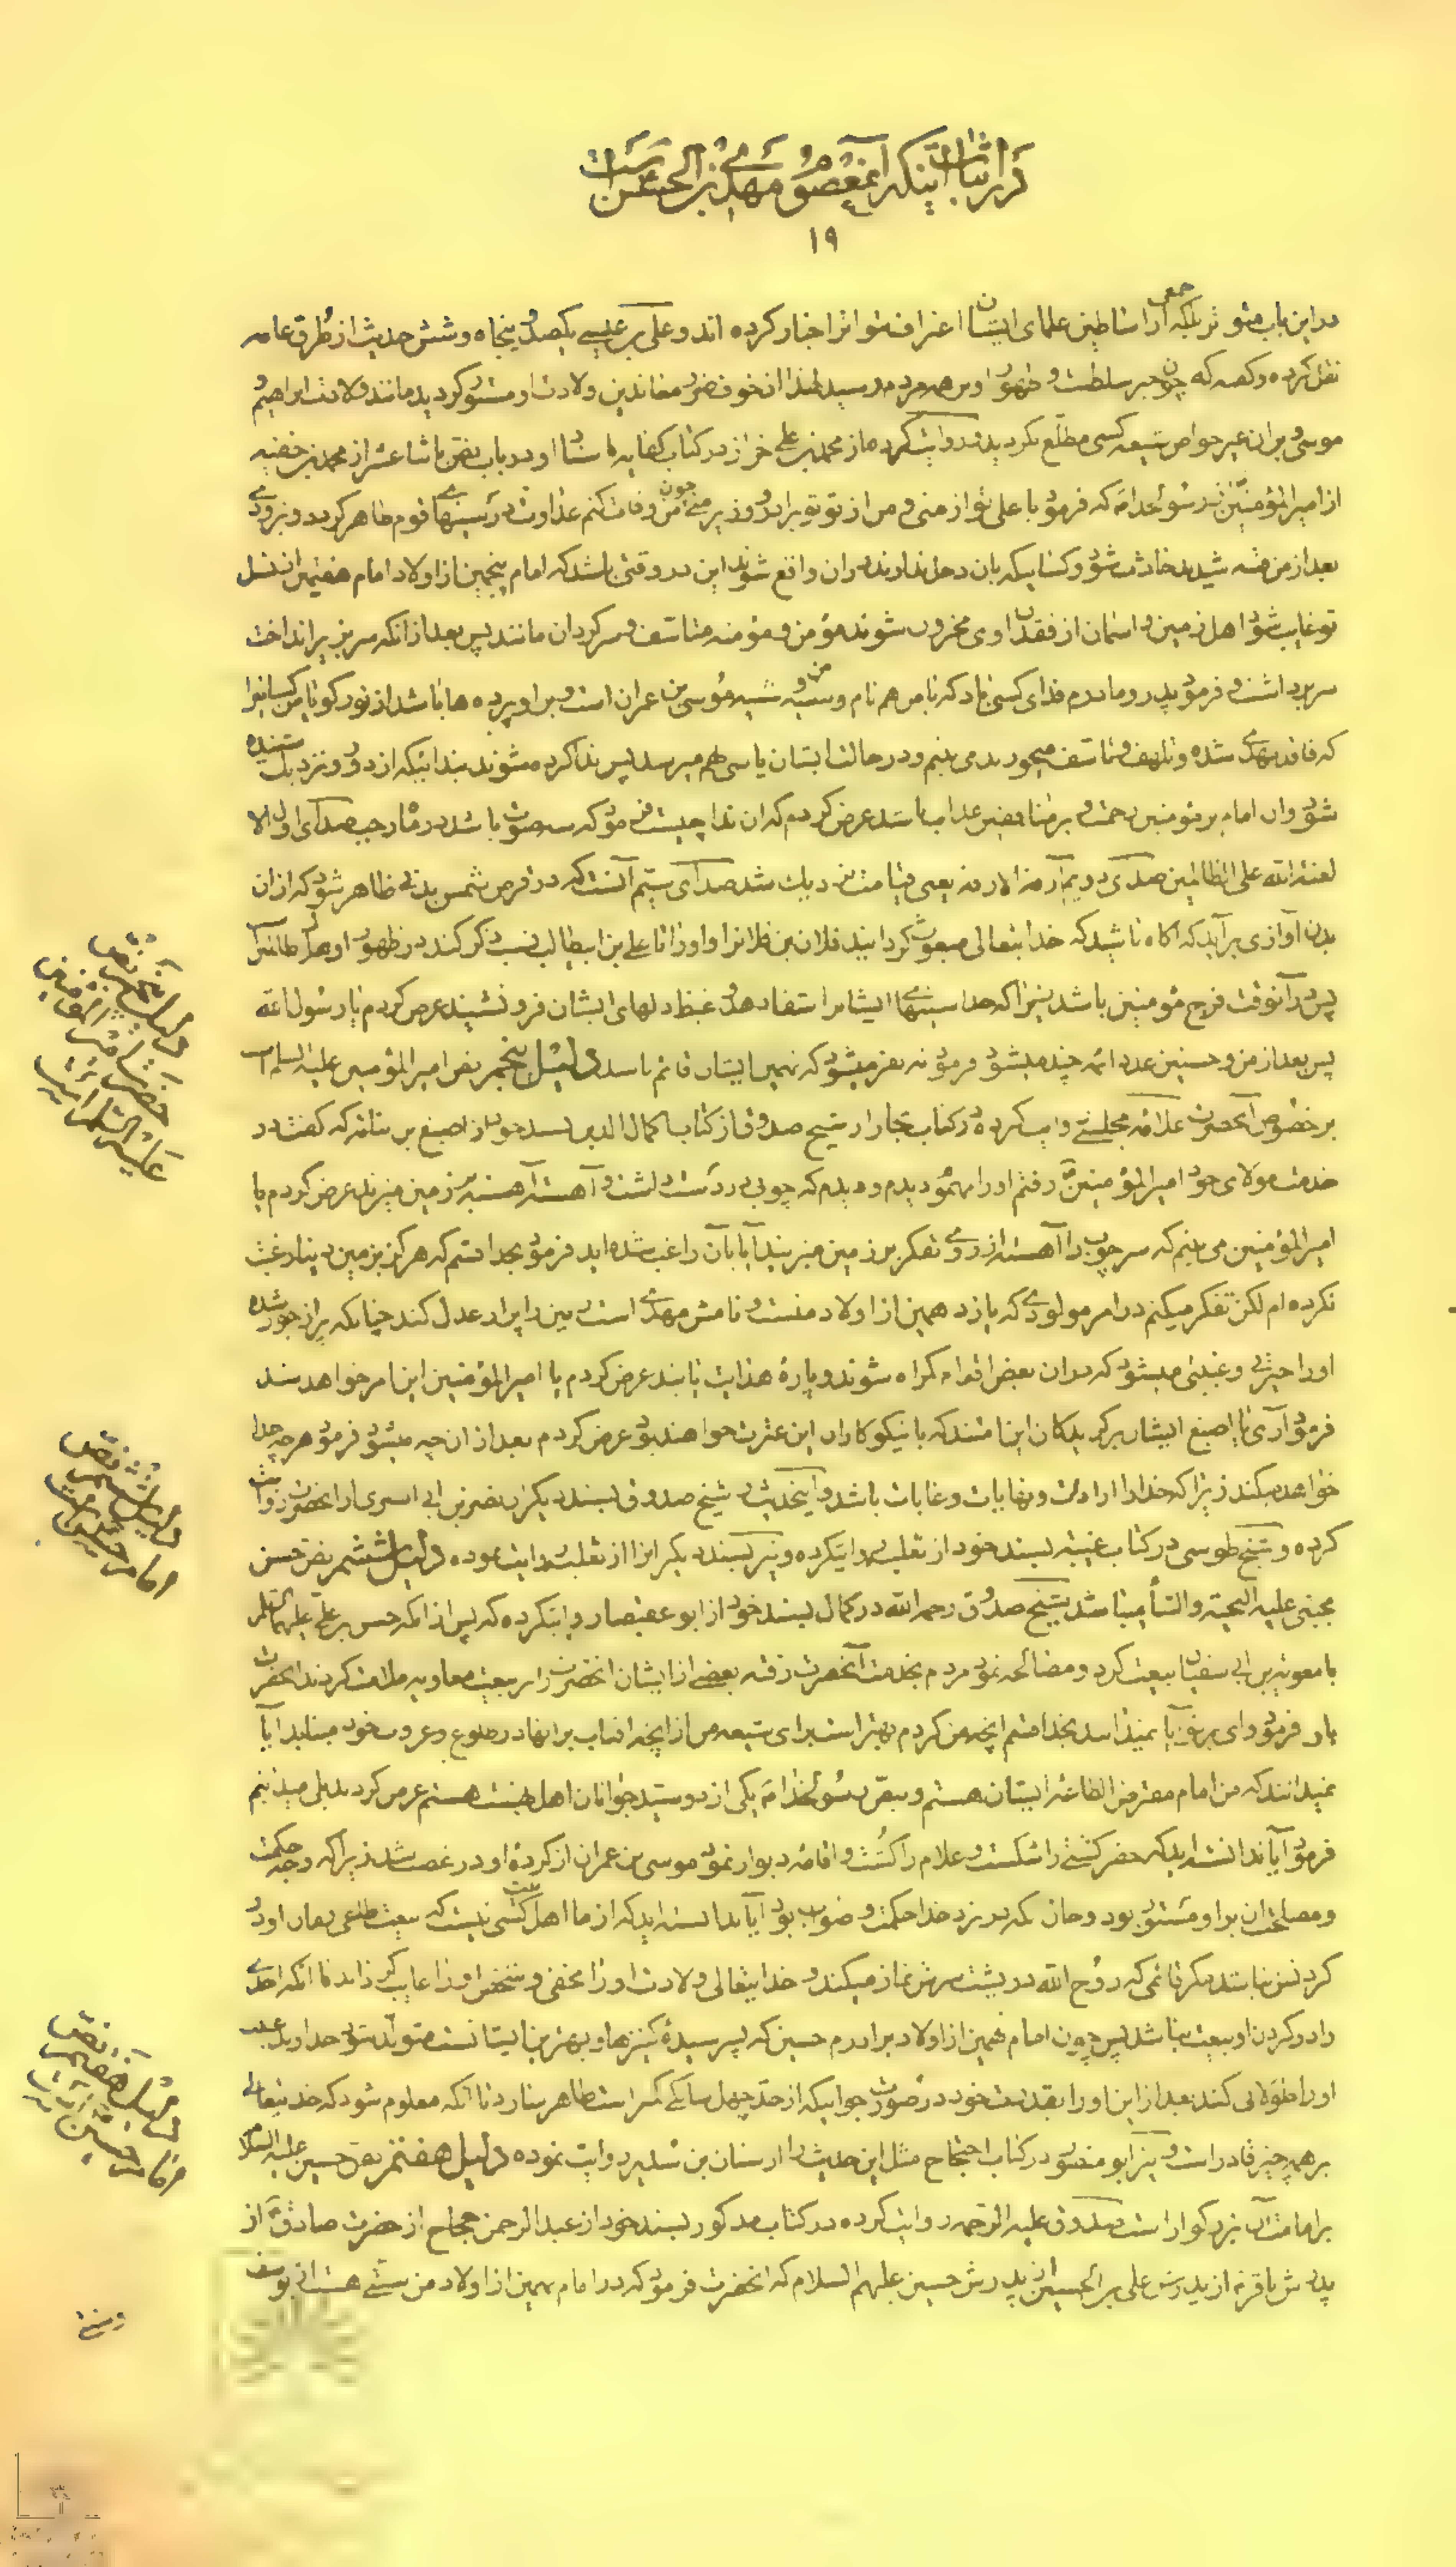 در اثبات اینکه آنمعصوم مهدی بن الحسن است
۱۹
در این باب مؤثر بلکه جمعی از اساطین علمای ایشان اعتراف بتواتر اخبار کرده اند و علی بن عیسی یکصد و پنجاه و شش حدیث از طرق عامه
نقل کرده و گفته که چون خبر سلطنت و ظهور او بر همه مردم رسید لهذا از خوف ضرر معاندین ولادت او مستور گردید مانند ولادت ابراهیم و
موسی و بر آن غیر خواص شیعه کسی مطلع نگردید و روایت کرده از محمد بن علی خراز در کتاب کفایه باسناد او در باب نص باثنا عشر از محمد بن حنفیه
از امیر المؤمنین از رسول خدا که فرمود یا علی تو از منی و من از تو تو برادر و وزیر منی چون من وفات کنم عداوت تو در سینهای قوم ظاهر گردد و بزودی
بعد از من فتنه شدید حادث شود و کسانیکه بآن دخل ندارند در آن واقع شوند این در وقتی باشد که امام پنجمین از اولاد امام هفتمین از نسل
تو غایب شود اهل زمین و آسمان از فقدان اوی محزون شوند مؤمن و مؤمنه متأسف و سرگردان مانند پس بعد از آنکه سر بزیر انداخت
سر برداشت و فرمود پدر و مادرم فدای کسی باد که با من هم نام و شبیه من و شبیه موسی بن عمران است و بر او پرده ها باشد از نور گویا من کسانیرا
که فاقد مهدی شده و تلهف و تأسف میخورند می بینم و در حالت ایشان یاسی هم میرسد پس ندا کرده میشوند بندائیکه از دور و نزدیک شنیده
شود و آن امام بر مؤمنین رحمت و بر منافقین عذاب باشد عرض کردم که آن ندا چیست فرمود که سه صوت باشد در ماه رجب صدای اول الا
لعنة الله علی الظالمین صدای دویم آزفت الآزفه یعنی قیامت نزدیک شد صدای سیم آنست که در قرص شمس بدنی ظاهر شود که از آن
بدن آوازی برآید که آگاه باشید که خدایتعالی مبعوث گردانید فلان بن فلانرا و او را تا علی بن ابیطالب نسب ذکر کند در ظهور او هلاک ظالمانست
پس در آنوقت فرج مؤمنین باشد زیرا که خدا سینهای ایشانرا شفا دهد و غیظ دلهای ایشان فرو نشیند عرض کردم یا رسول الله
پس بعد از من و حسنین عدد ائمه چند میشود فرمود نه نفر میشود که نهمین ایشان قائم باشد دلیل پنجم نص امیر المؤمنین علیه السلام است
بر خصوص آنحضرت علامه مجلسی روایت کرده در کتاب بحار از شیخ صدوق از کتاب کمال الدین بسند خود از اصبغ بن نباته که گفت در
خدمت مولای خود امیر المؤمنین رفتم او را مهموم دیدم و دیدم که چوبی در دست داشت و آهسته آهسته بر زمین میزند عرض کردم یا
امیر المؤمنین می بینم که سر چوب را آهسته از روی تفکر بر زمین میزنید آیا بآن راغب شده اید فرمود بخدا قسم که هرگز بزمین و دنیا رغبت
نکرده ام لکن تفکر میکنم در امر مولودی که یازدهمین از اولاد منست و نامش مهدی است زمین را پر از عدل کند چنانکه پر از جور شده
او را حیرتی و غیبتی میشود که در آن بعض اقوام گمراه شوند و پاره هدایت یابند عرض کردم یا امیر المؤمنین این امر خواهد شد
فرمود آری یا اصبغ ایشان برگزیدگان این امتند که با نیکوکاران این عترت خواهند بود عرض کردم بعد از آن چه میشود فرمود هر چه خدا
خواهد میکند زیرا که خدا را ارادات و نهایات و غایات باشد و اینحدیث را شیخ صدوق بسند دیگر از نضر بن ابی السری از آنحضرت روایت
کرده و شیخ طوسی در کتاب غیبت بسند خود از ثعلبه روایتکرده و نیز بسند دیگر آنرا از ثعلبه روایت نموده دلیل ششم نص حسن
مجتبی علیه التحیة والثنا میباشد شیخ صدوق رحمه الله در کمال بسند خود از ابو عقیصا روایتکرده که پس از آنکه حسن بن علی علیهما السلام
با معویه بن ابی سفیان بیعت کرد و مصالحه نمود مردم بخدمت آنحضرت رفته بعضی از ایشان آنحضرت را بر بیعت معاویه ملامت کردند آنحضرت
بآن فرمود وای بر تو آیا نمیدانید بخدا قسم آنچه من کردم بهتر است برای شیعه من از آنچه آفتاب بر آنها در طلوع و غروب خود میتابد آیا
نمیدانند که من امام مفترض الطاعه ایشان هستم و بنص رسول خدا یکی از دو سید جوانان اهل بهشت هستم عرض کرد بلی میدانیم
فرمود آیا ندانسته اید که خضر کشتی را شکست و غلام را کشت و اقامه دیوار نمود موسی بن عمران از کرده او در غضب شد زیرا که وجه حکمت
و مصلحت آن بر او مستور بود و حال آنکه در نزد خدا حکمت و صواب بود آیا ندانسته اید که از ما اهل بیت کسی نیست که بیعت طاغی زمان او در
گردنش نباشد مگر قائمی که روح الله در پشت سرش نماز میکند و خدایتعالی ولادت او را مخفی و شخص او را غایب گرداند تا آنکه احدی
را در گردن او بیعت نباشد پس چون امام نهمین از اولاد برادرم حسین که پسر سیده کنیزها و بهترین ایشانست متولد شود خدا در غیبت
او را طولانی کند بعد از این او را بقدرت خود در صورت جوانیکه از حد چهل سالگی کمتر است ظاهر سازد تا آنکه معلوم شود که خدایتعالی
بر همه چیز قادر است و نیز ابو منصور در کتاب احتجاج مثل این حدیث را از حنان بن سدیر روایت نموده دلیل هفتم نص حسین علیه السلام
بر امامت آن بزرگوار است صدوق علیه الرحمه روایت کرده در کتاب مذکور بسند خود از عبد الرحمن حجاج از حضرت صادق از
پدرش باقر از پدرش علی بن الحسین از پدرش حسین علیهم السلام که آنحضرت فرمود که در امام نهمین از اولاد من سنتی هست از یوسف
و سنتی
دلیل پنجم نص
حضرت
علیه السلام است
دلیل ششم نص
امام حسن
دلیل هفتم نص
امام حسین است